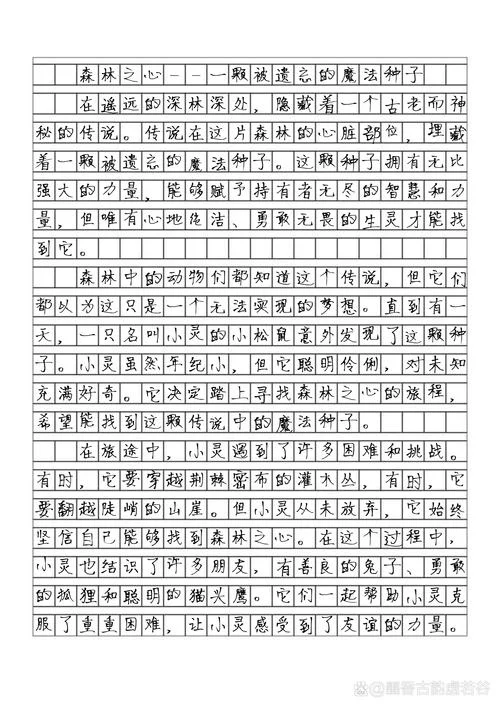 森林之心--一颗被遗忘的魔法种子
在遥远的深林深处，隐藏着一个古老而神
秘的传说。传说在这片森林的心脏部位，埋藏
着一颗被遗忘的魔法种子。这颗种子拥有无比
强大的力量，能够赋予持有者无尽的智慧和力
量，但唯有心地纯洁、勇敢无畏的生灵才能找
到它。
森林中的动物们都知道这个传说，但它们
都以为这只是一个无法实现的梦想。直到有一
天，一只名叫小灵的小松鼠意外发现了这颗种
子。小灵虽然年纪小，但它聪明伶俐，对未知
充满好奇。它决定踏上寻找森林之心的旅程，
希望能找到这颗传说中的魔法种子。
在旅途中，小灵遇到了许多困难和挑战。
有时，它要穿越荆棘密布的灌木丛，有时，它
要翻越陡峭的山崖。但小灵从未放弃，它始终
坚信自己能够找到森林之心。在这个过程中，
小灵也结识了许多朋友，有善良的兔子、勇敢
的狐狸和聪明的猫头鹰。它们一起帮助小灵克
服了重重困难，让小灵感受到了友谊的力量。